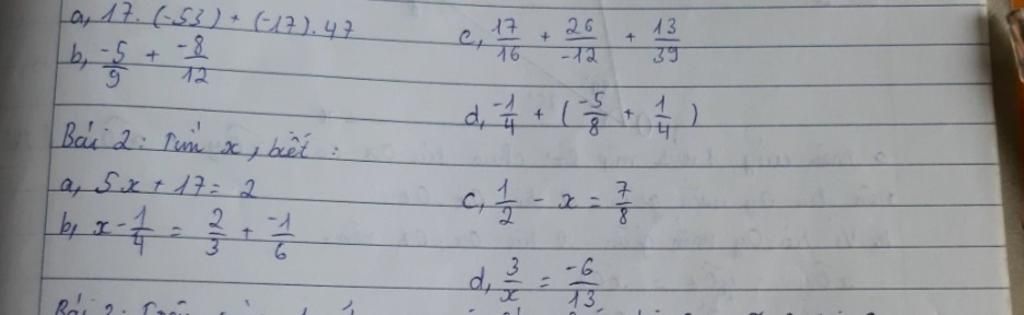 a, 17. (-53) + (-17). 47
b, -5/9 + -8/12
c, 17/16 + 26/-12 + 13/39
d, -1/4 + (-5/8 + 1/4)
Bài 2: Tìm x, biết:
a, 5x + 17 = 2
b, x - 1/4 = 2/3 + -1/6
c, 1/2 - x = 7/8
d, 3/x = -6/13